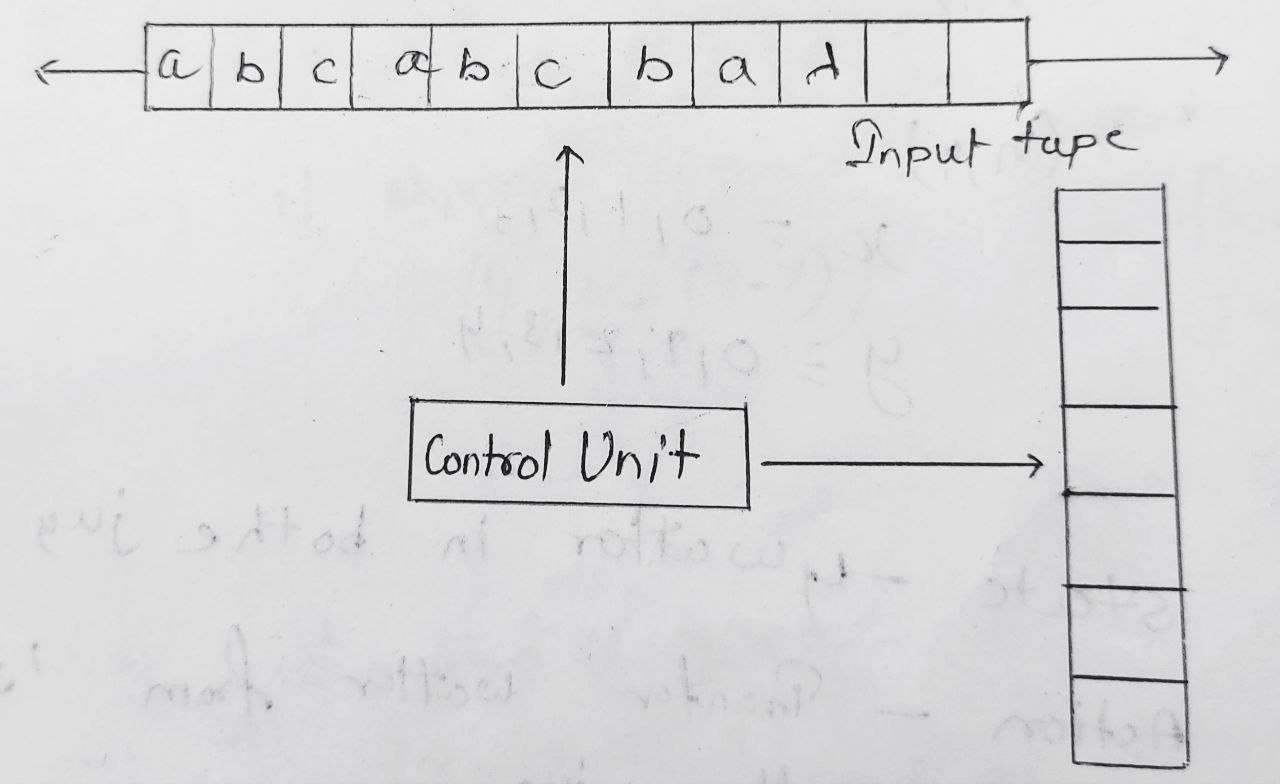 a b c a b c b a λ
Input tape
Control Unit